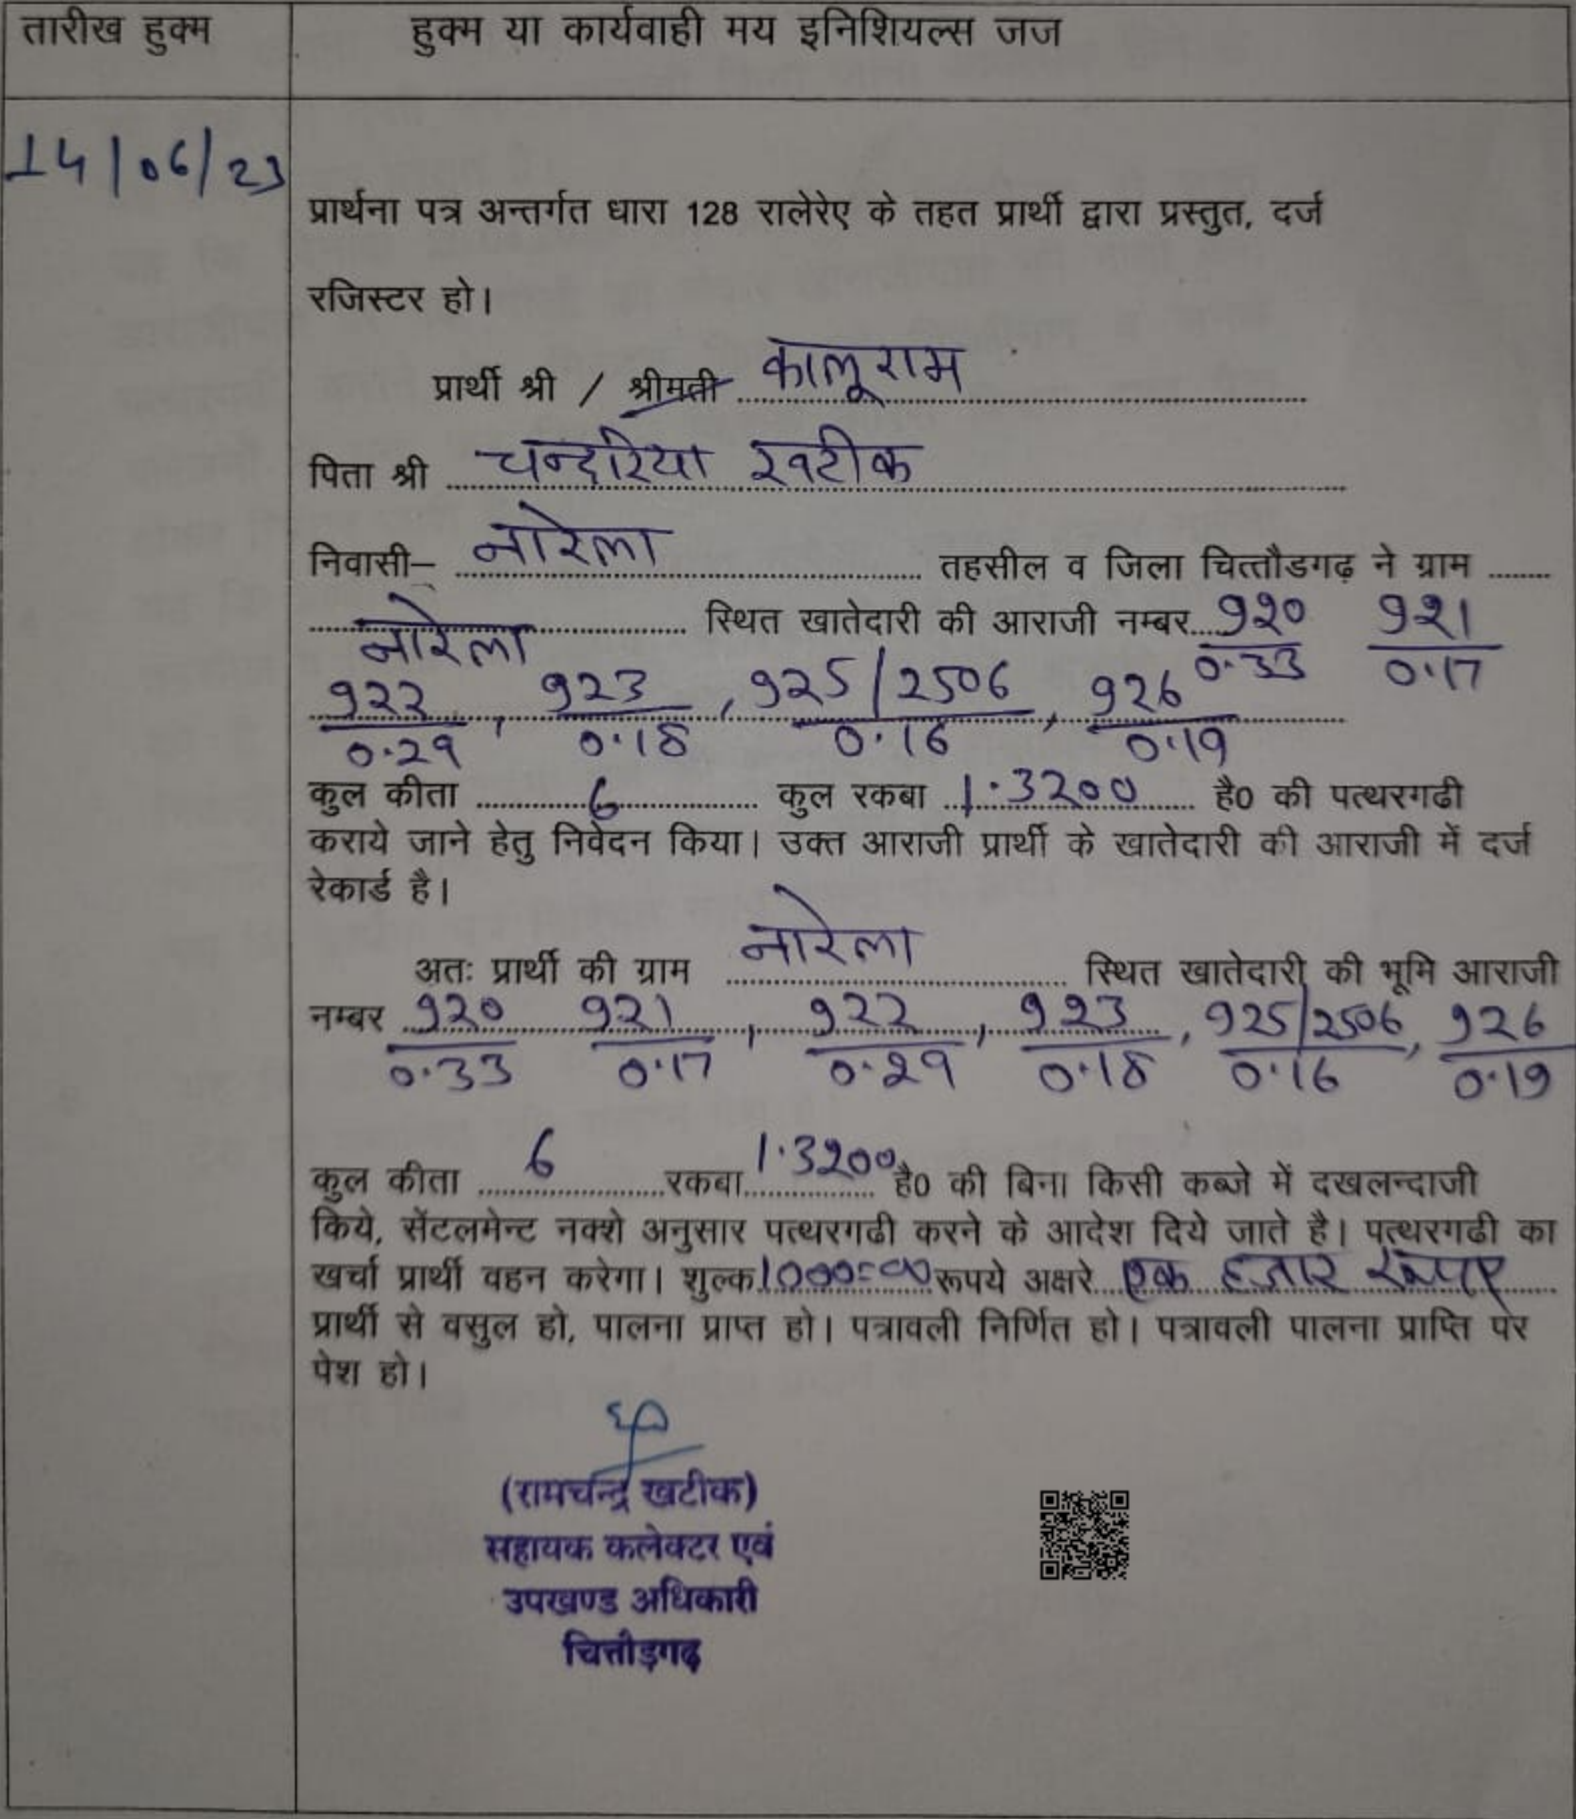 तारीख हुक्म
हुक्म या कार्यवाही मय इनिशियल्स जज
14/06/23
प्रार्थना पत्र अन्तर्गत धारा 128 रालेरेए के तहत प्रार्थी द्वारा प्रस्तुत, दर्ज
रजिस्टर हो।
प्रार्थी श्री / श्रीमती कालूराम
पिता श्री चन्दरिया खटीक
निवासी– नारेला तहसील व जिला चित्तौडगढ़ ने ग्राम
नारेला स्थित खातेदारी की आराजी नम्बर 920/0.33 921/0.17
922/0.29, 923/0.18, 925/2506/0.16, 926/0.19
कुल कीता 6 कुल रकबा 1.3200 है0 की पत्थरगढी
कराये जाने हेतु निवेदन किया। उक्त आराजी प्रार्थी के खातेदारी की आराजी में दर्ज
रेकार्ड है।
अतः प्रार्थी की ग्राम नारेला स्थित खातेदारी की भूमि आराजी
नम्बर 920/0.33 921/0.17, 922/0.29, 923/0.18, 925/2506/0.16, 926/0.19
कुल कीता 6 रकबा 1.3200 है0 की बिना किसी कब्जे में दखलन्दाजी
किये, सेंटलमेन्ट नक्शे अनुसार पत्थरगढी करने के आदेश दिये जाते है। पत्थरगढी का
खर्चा प्रार्थी वहन करेगा। शुल्क 1000=00 रूपये अक्षरे एक हजार रूपए
प्रार्थी से वसुल हो, पालना प्राप्त हो। पत्रावली निर्णित हो। पत्रावली पालना प्राप्ति पर
पेश हो।
(रामचन्द्र खटीक)
सहायक कलेक्टर एवं
उपखण्ड अधिकारी
चित्तौड़गढ़